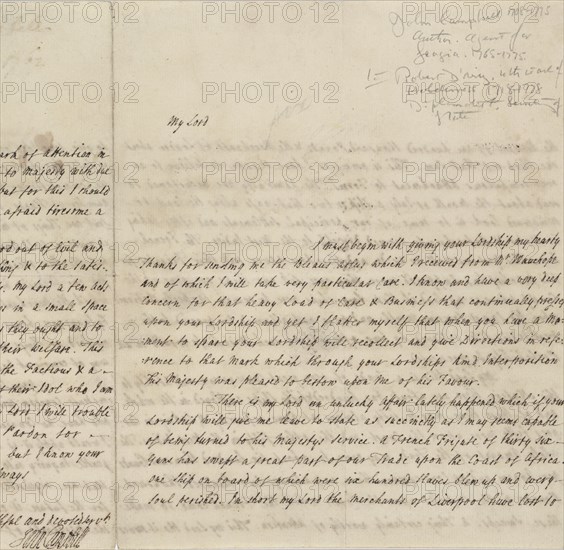 John Campbell 1708-1775
Author. Agent for
Georgia. 1765-1775
to Robert D'Arcy, 4th Earl of
Holderness 1718-1778
Diplomatist. Secretary of
State
My Lord
I must begin with giving your Lordship my hearty
thanks for sending me the Bleaus Atlas which I received from Mr.
and of which I will take very particular Care. I know and have a very deep
Concern for that heavy Load of Care & Business that continually presses
upon your Lordship and yet I flatter myself that when you have a Mo-
ment to spare your Lordship will recollect and give directions in refe-
rence to that Mark which through your Lordships kind Interposition
His Majesty was pleased to bestow upon Me of his Favour.
There is my Lord an unlucky Affair lately happened which if your
Lordship will give me leave to state as succinctly as I may seems capable
of being turned to his Majestys Service. A French Frigate of thirty six
Guns has swept a great part of our Trade upon the Coast of Africa.
one Ship on board of which were six hundred Slaves blew up and every
soul perished. In short my Lord the Merchants of Liverpool have lost to
ark of attention in
to Majesty with due
but for this I should
afraid tiresome a
ord out of Evil and
& to the satis-
My Lord a few acts
us in a small space
they ought and to
their welfare. This
the Factious & a-
their Idol who I am
Lord I will trouble
Pardon for
but I know your
lways
ful and devoted Servt.
John Campbell
PHOTO12